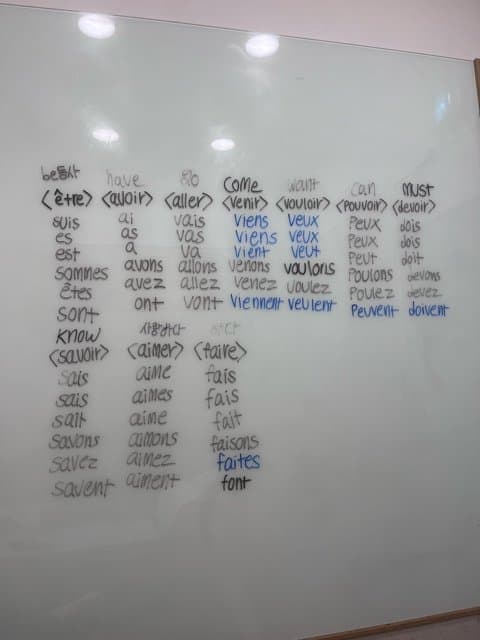 be동사 have 가다 COME want can must
<être> <avoir> <aller> <venir> <vouloir> <pouvoir> <devoir>
suis ai vais viens veux peux dois
es as vas viens veux peux dois
est a va vient veut peut doit
sommes avons allons venons voulons poulons devons
êtes avez allez venez voulez poulez devez
sont ont vont viennent veulent peuvent doivent
know 사랑하다
<savoir> <aimer> <faire>
sais aime fais
sais aimes fais
sait aime fait
savons aimons faisons
savez aimez faites
savent aiment font